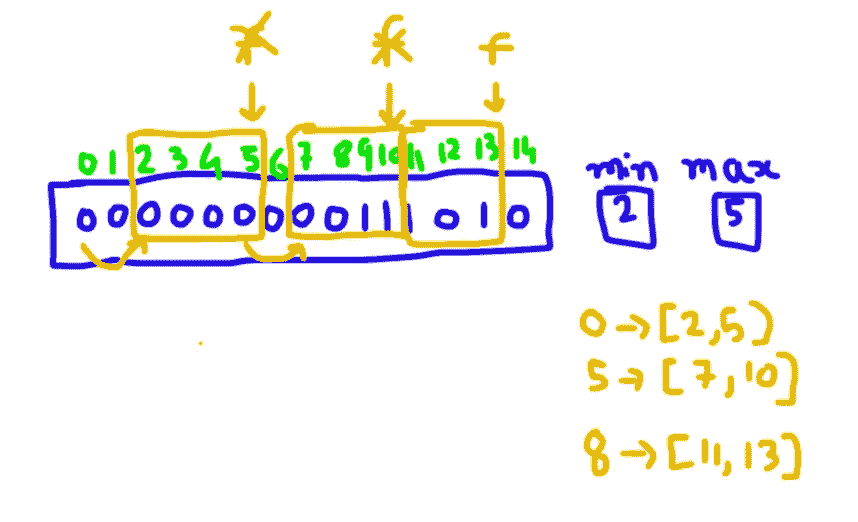 f f f
0 1 2 3 4 5 6 7 8 9 10 11 12 13 14
0 0 0 0 0 0 0 0 0 1 1 1 0 1 0
min max
2 5
0 → [2,5)
5 → [7,10]
8 → [11,13]